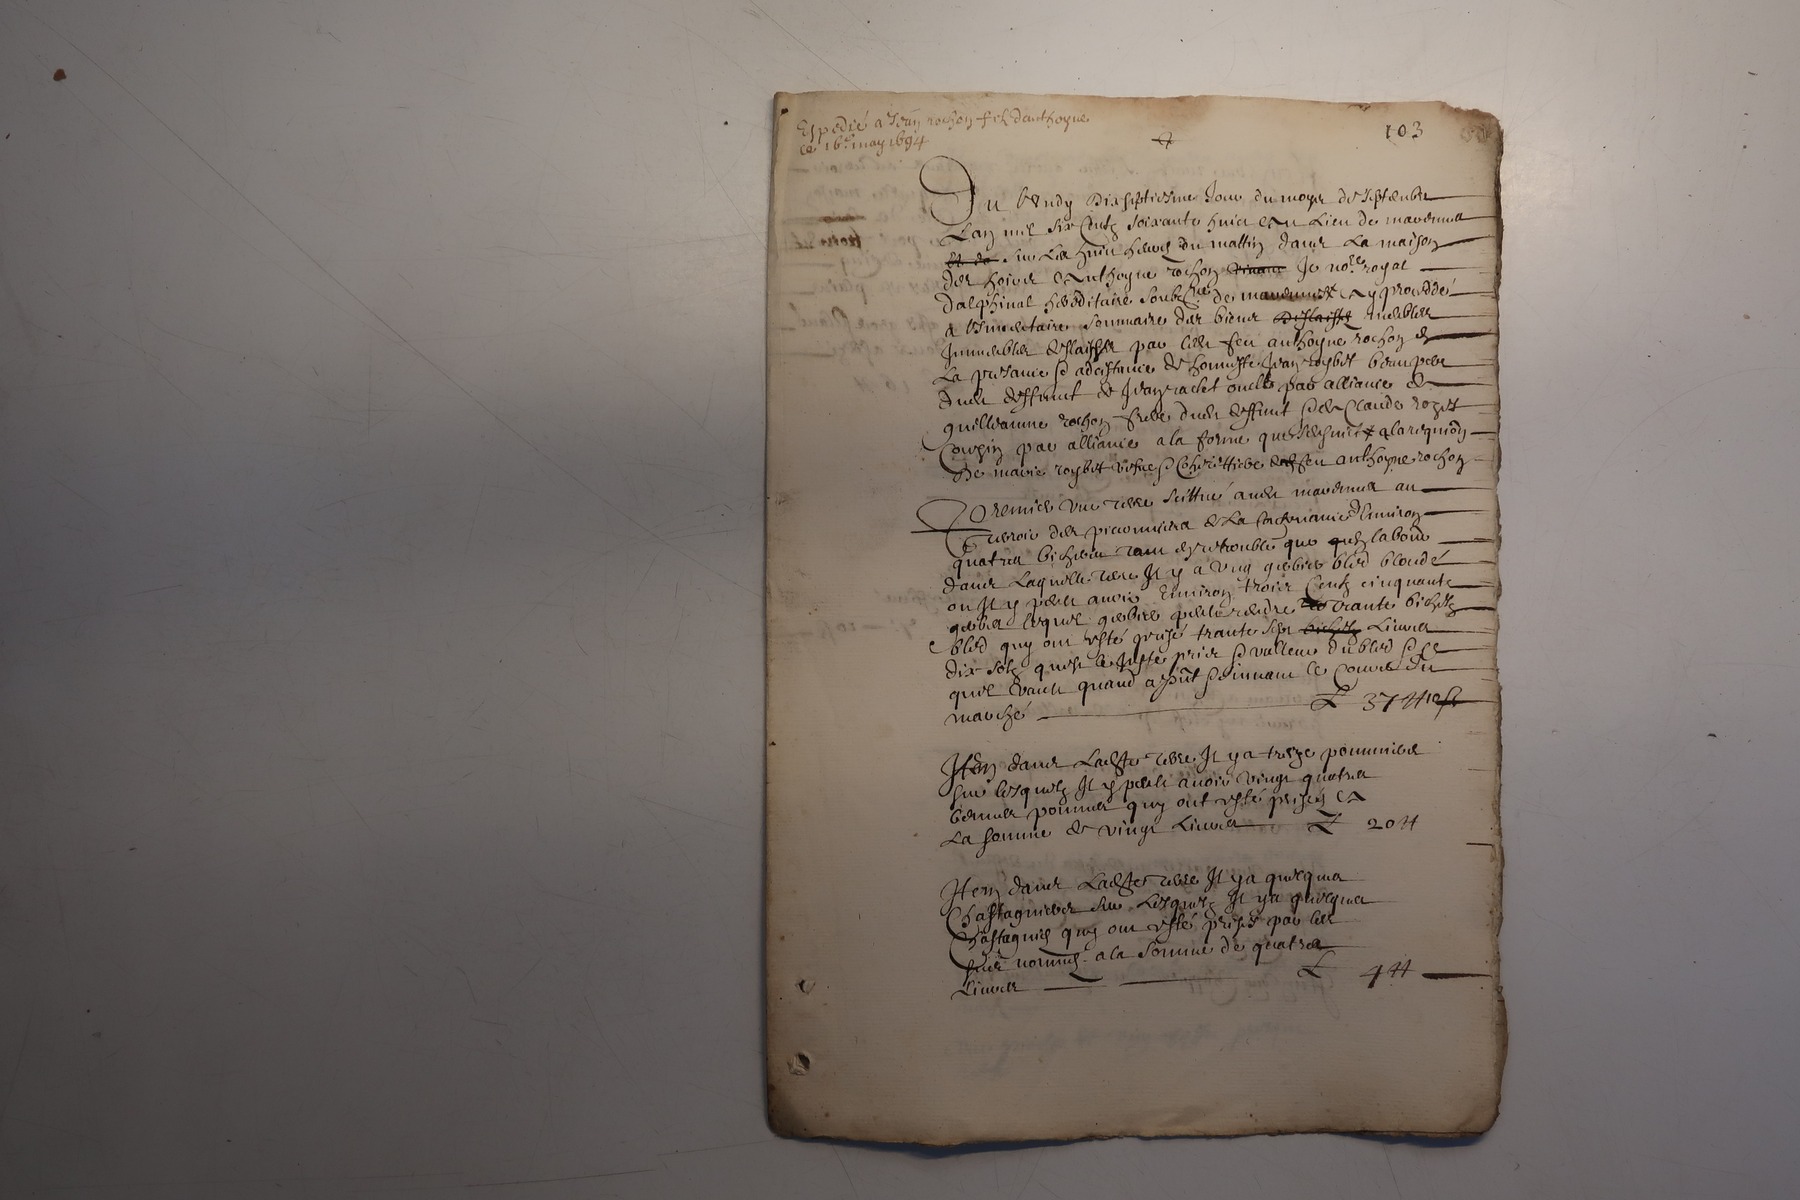 Expedié a Jean rochon filz danthoyne
ce 16e may 1694
103
Du lundy dixseptiesme Jour du moys de septembre
Lan mil six centz soixante huict et au Lieu de
sur les huict heures du mattin dans La maison
des hoirs danthoyne rochon Je nore royal
dalphinal hereditaire soubzne de a procedde
a linventaire sommaire des biens meubles
Immeubles deslaisses par led feu anthoyne rochon en
La presance & adcistance de honneste Jean roybet beaupere
dud deffunt de Jean oncle par alliance de
guilleaume rochon frere dud deffunt & de Claude
Cousin par alliance a la forme que sensuict a la requion
De marie roybet vefve & coherettiere dud feu anthoyne rochon
Premier une terre scittué aud au
terroir des de la contenance denviron
quatre bichers tant en que labour
dans Laquelle terre Il y a ung gerbier bled
ou Il y peult avoir Environ trois Centz cinquante
gerbes lequel gerbier peult rendre trante bichetz
bled quy ont esté prisé trante sept Livres
dix solz quest le Juste prix & valleur du bled & ce
quil vault quand a pnt suivant le Cours du
marché L 37 ₶ 10 s
Item dans Ladte terre Il y a treize pommiers
sur lesquelz Il y peult avoir vingt quatre
bennes pommes quy ont esté prisés a
La somme de vingt Livres L 20 ₶
Item dans Ladte terre Il y a quelques
Chastagniers sur Lesquelz Il y a quelques
Chastagnes quy ont esté prises par les
sus nommes a la somme de quatre
Livres L 4 ₶